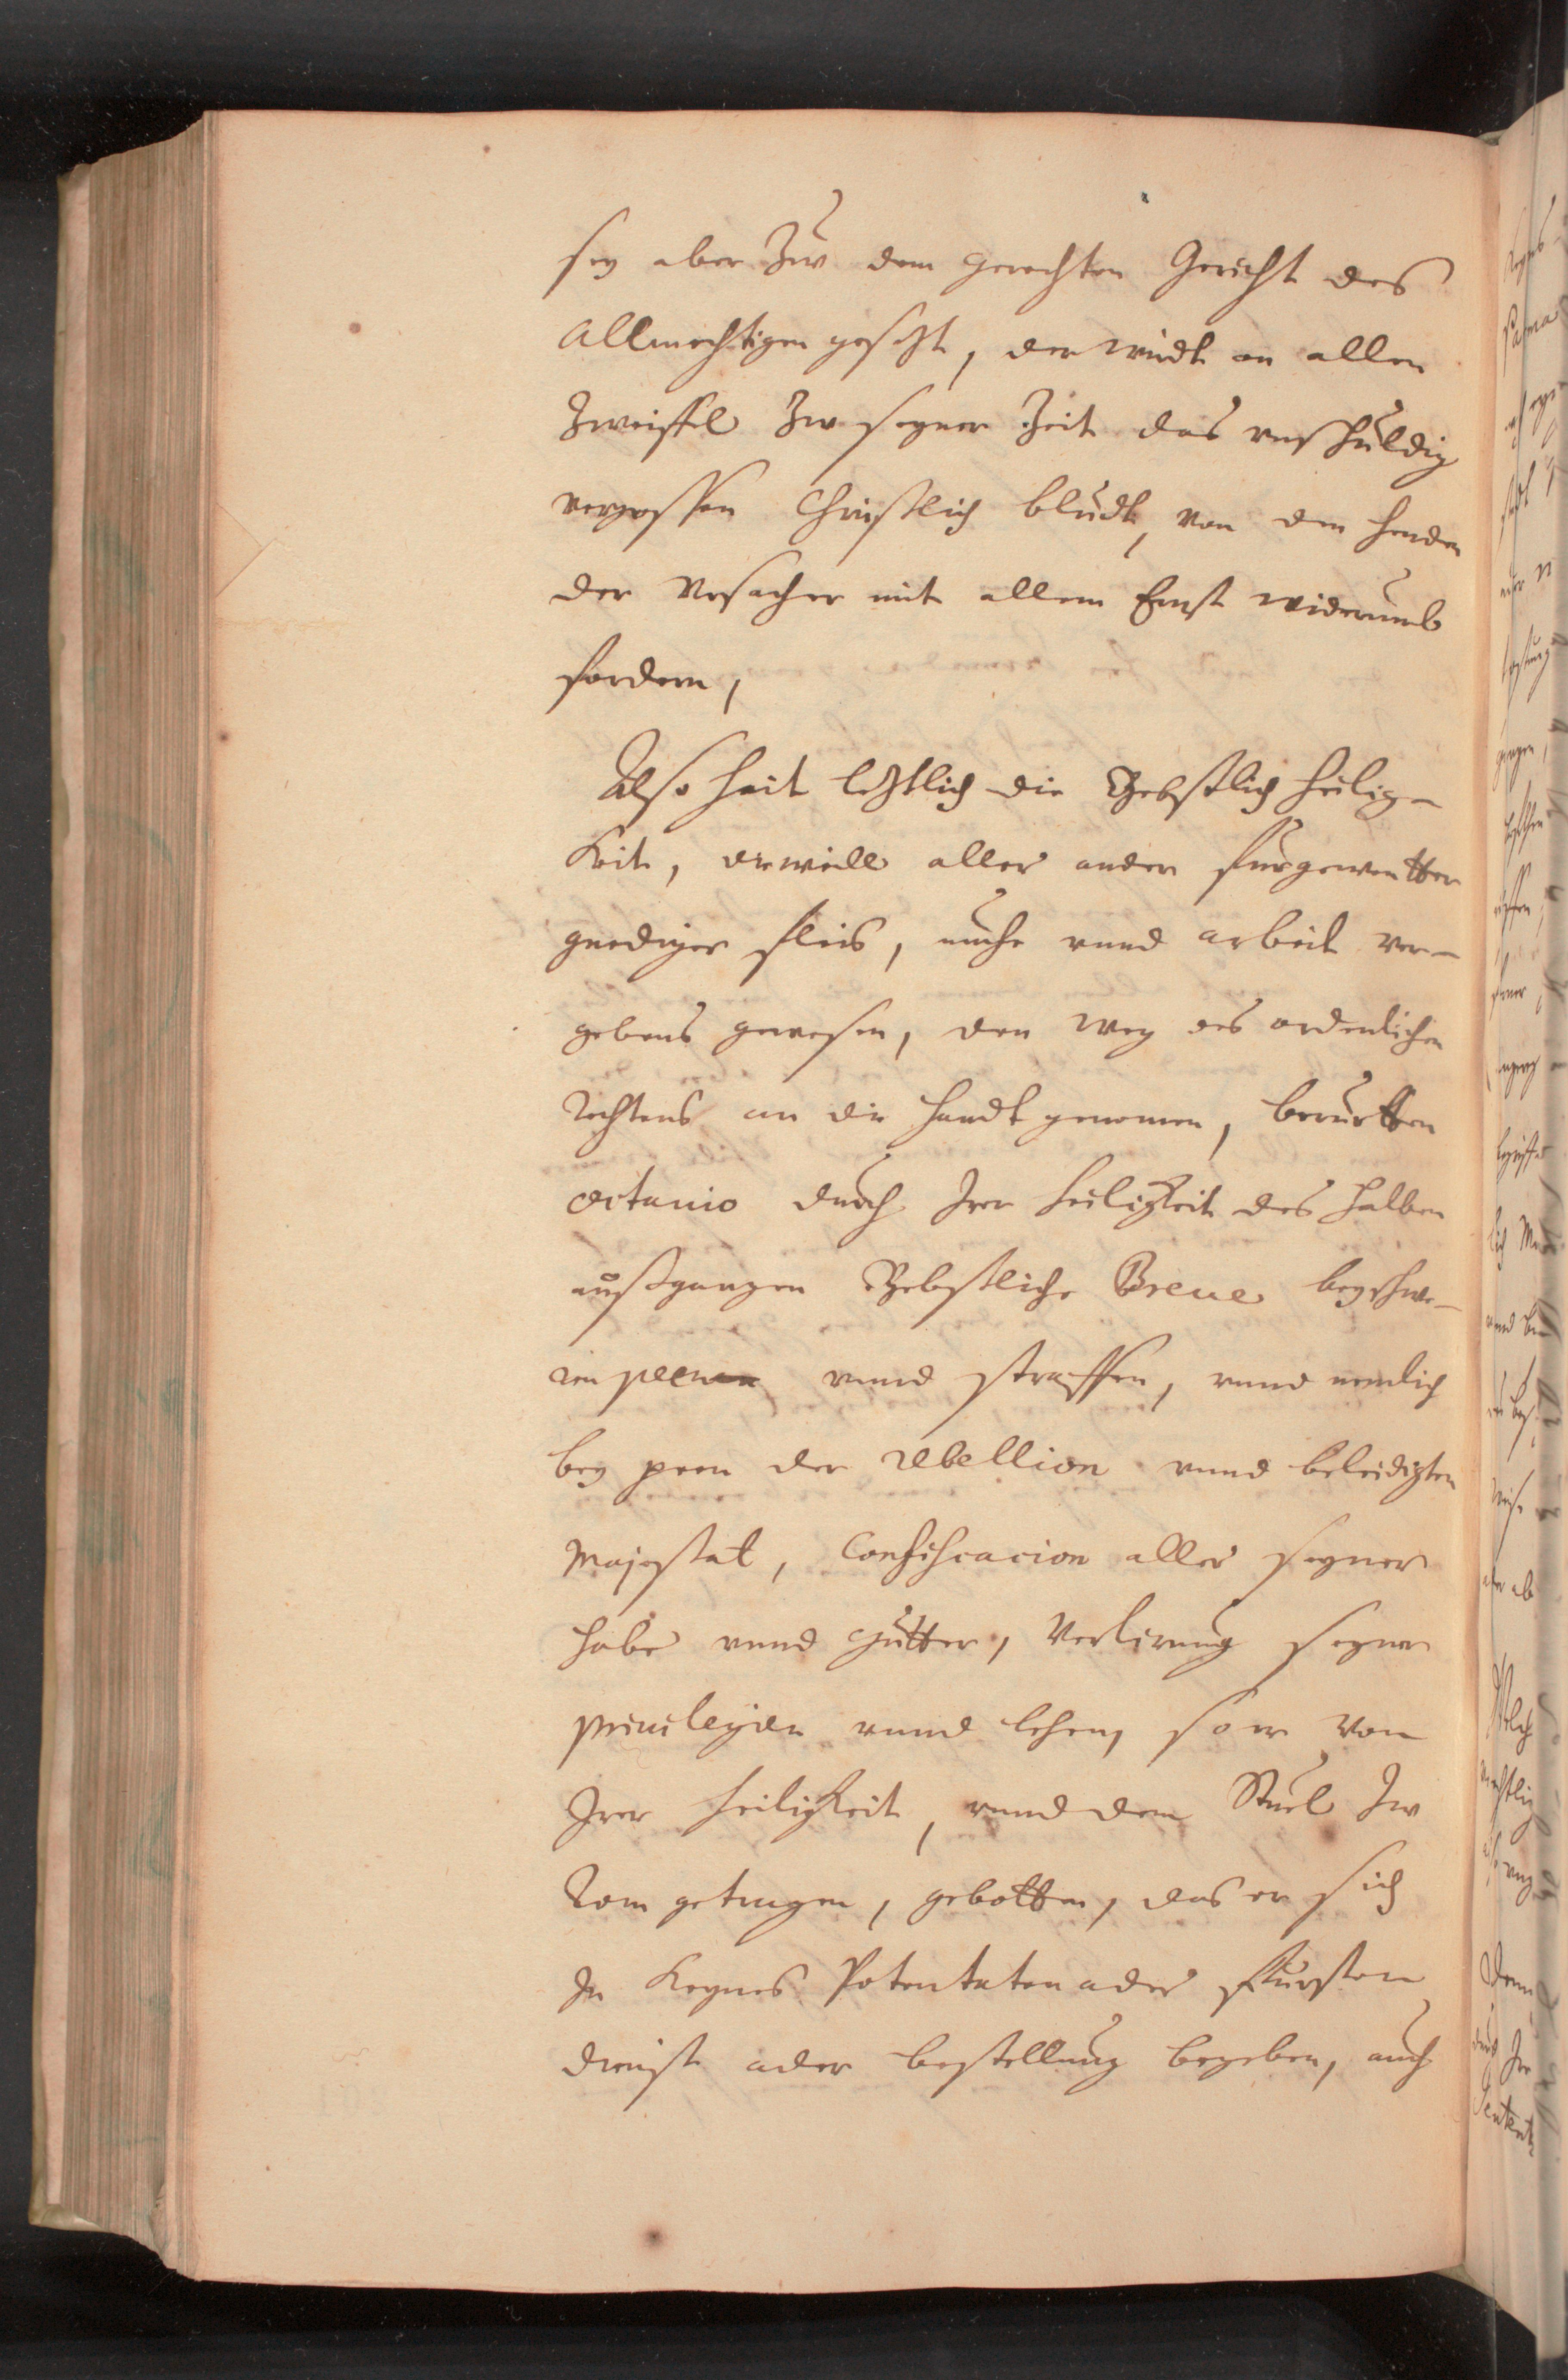 sey aber Zw dem gerechten Gericht des
Allmechtigen gesetzt, der wirdt on allen
Zweiffel Zw seyner Zeit das unschuldig
vergossen Christlich bludt, von den henden
der Vrsacher mit allem Ernst widerumb
fordern,
Also hait letztlich die Bebstlich heilig-
keit, dieweill aller ander furgewentter
gnediger fleis, muhe unnd arbeit ver-
gebens gewesen, den weg des ordenlichen
Rechtens an die handt genomen, berurtten
Octavio durch Irer heiligkeit des halben
außgangen Bebstliche Breue bey schwe-
ren peenen unnd straffen, unnd nemlich
bey peen der Rebellion unnd beleidigten
Majestat, Confiscacion aller seyner
habe unnd gutter, Verlirung seyner
priuilegien unnd lehen, so er von
Irer heiligkeit, unnd dem Stuel Zw
Rom getragen, gebotten, das er sich
In keynes Potentaten ader Fursten
dienst ader bestellung begeben, auch